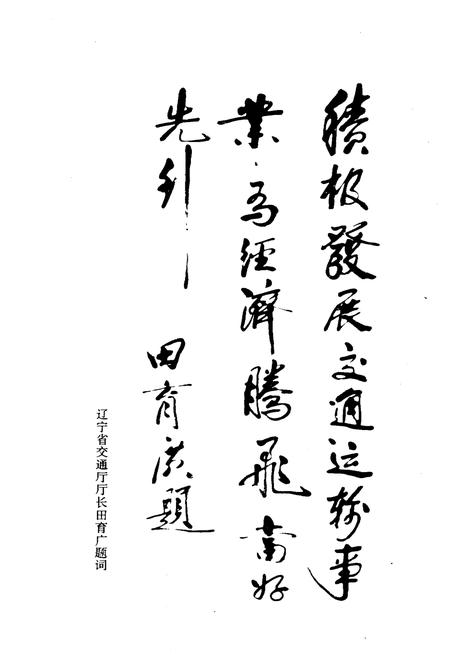 積极發展交通运輸事
業，为經濟腾飛當好
先行
田育广題
辽宁省交通厅厅长田育广题词